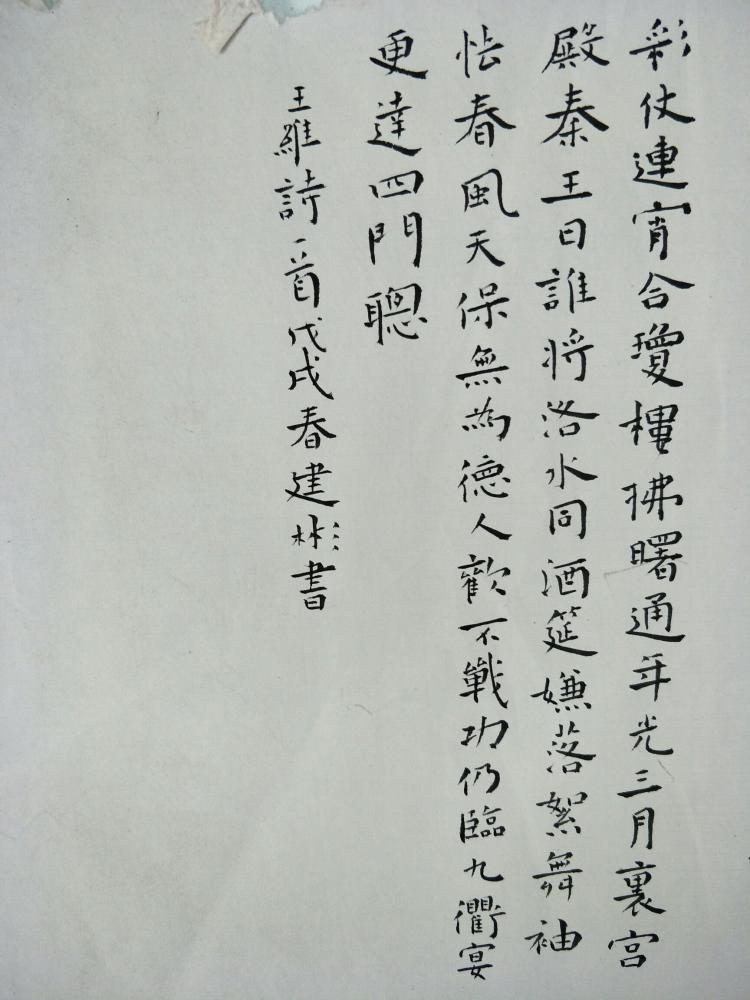 彩仗連宵合瓊樓拂曙通年光三月裏宮
殿秦王日誰將洛水同酒筵嫌落絮舞袖
怯春風天保無為德人歡不戰功仍臨九衢宴
更達四門聰
王維詩一首戊戌春建彬書